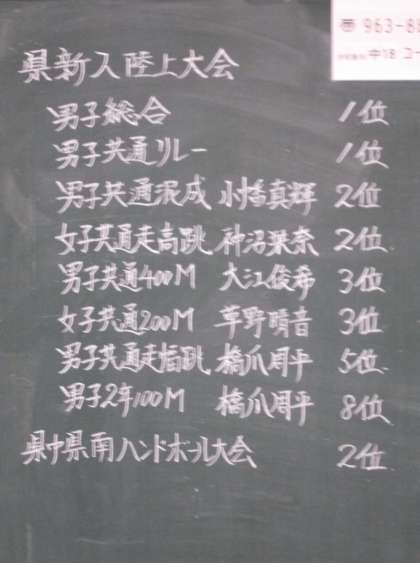 〒963-88
中18.コー
県新人陸上大会
男子総合 1位
男子共通リレー 1位
男子共通混成 小椿真輝 2位
女子共通走高跳 神沼栞奈 2位
男子共通400M 大江俊希 3位
女子共通200M 草野晴音 3位
男子共通走幅跳 橋爪周平 5位
男子2年100M 橋爪周平 8位
県中県南ハンドボール大会 2位